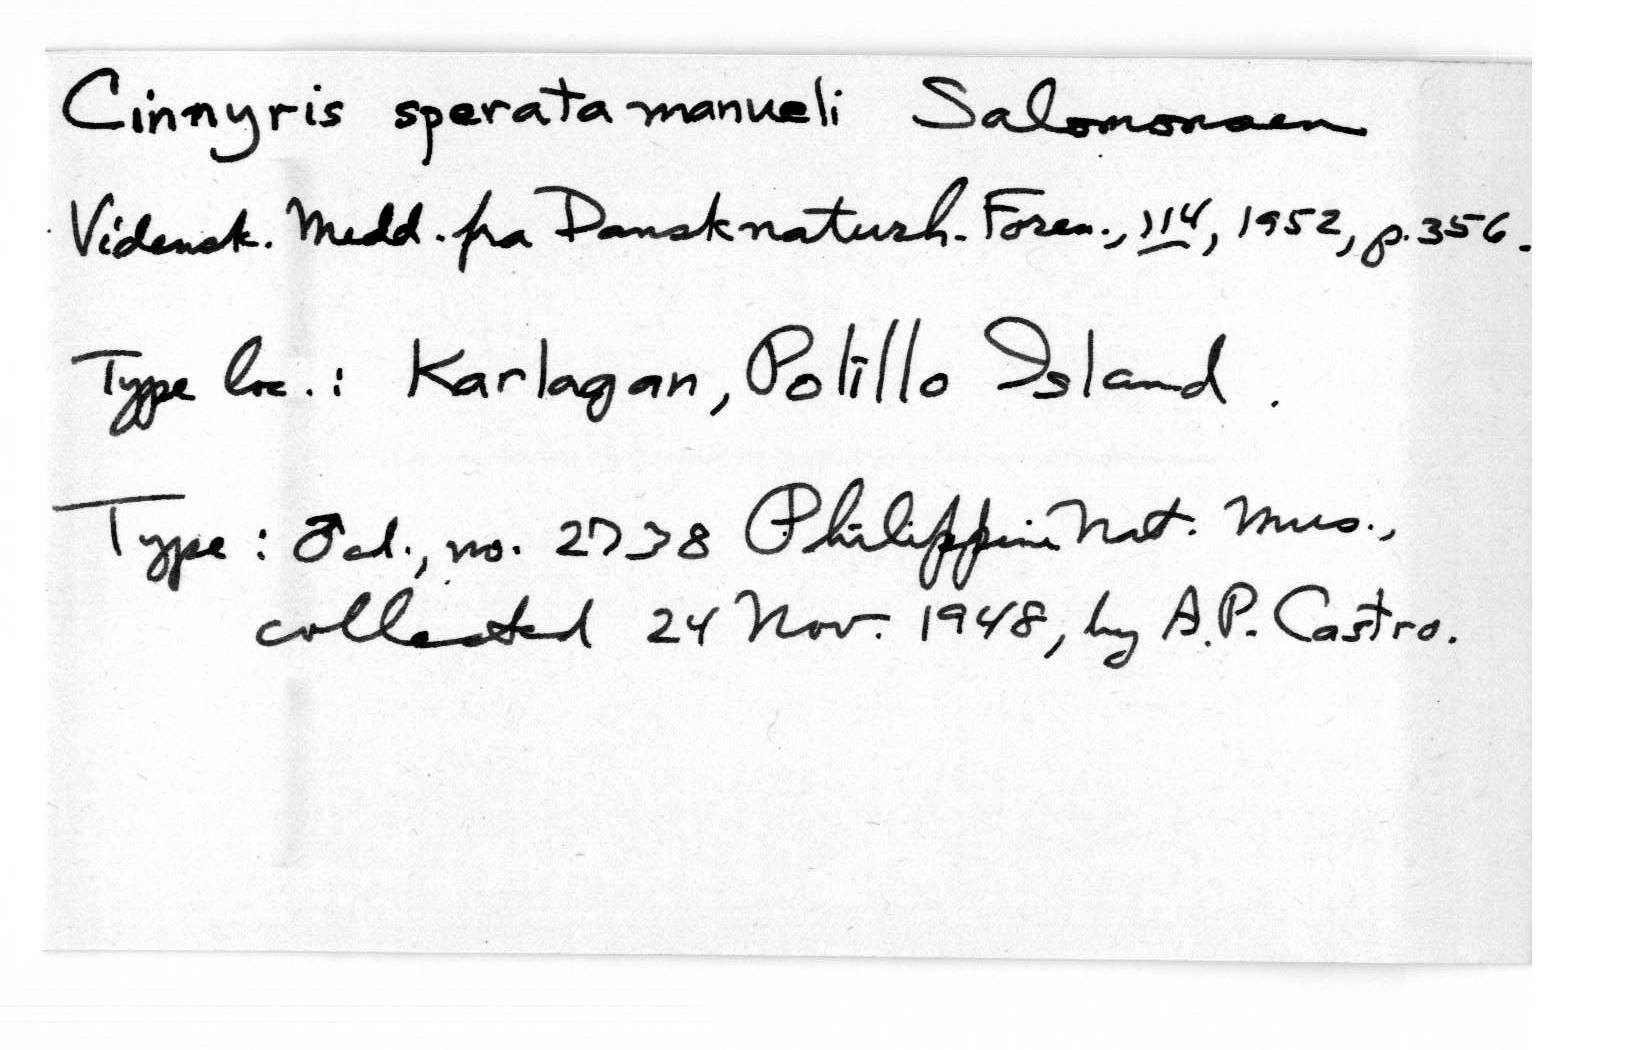 Cinnyris sperata manueli Salomonsen
Vidensk. Medd. fra Dansk naturh. Foren., 114, 1952, p. 356.
Type loc.: Karlagan, Polillo Island.
Type: ♂ ad., no. 2738 Philippine Nat. Mus.,
collected 24 Nov. 1948, by A.P. Castro.